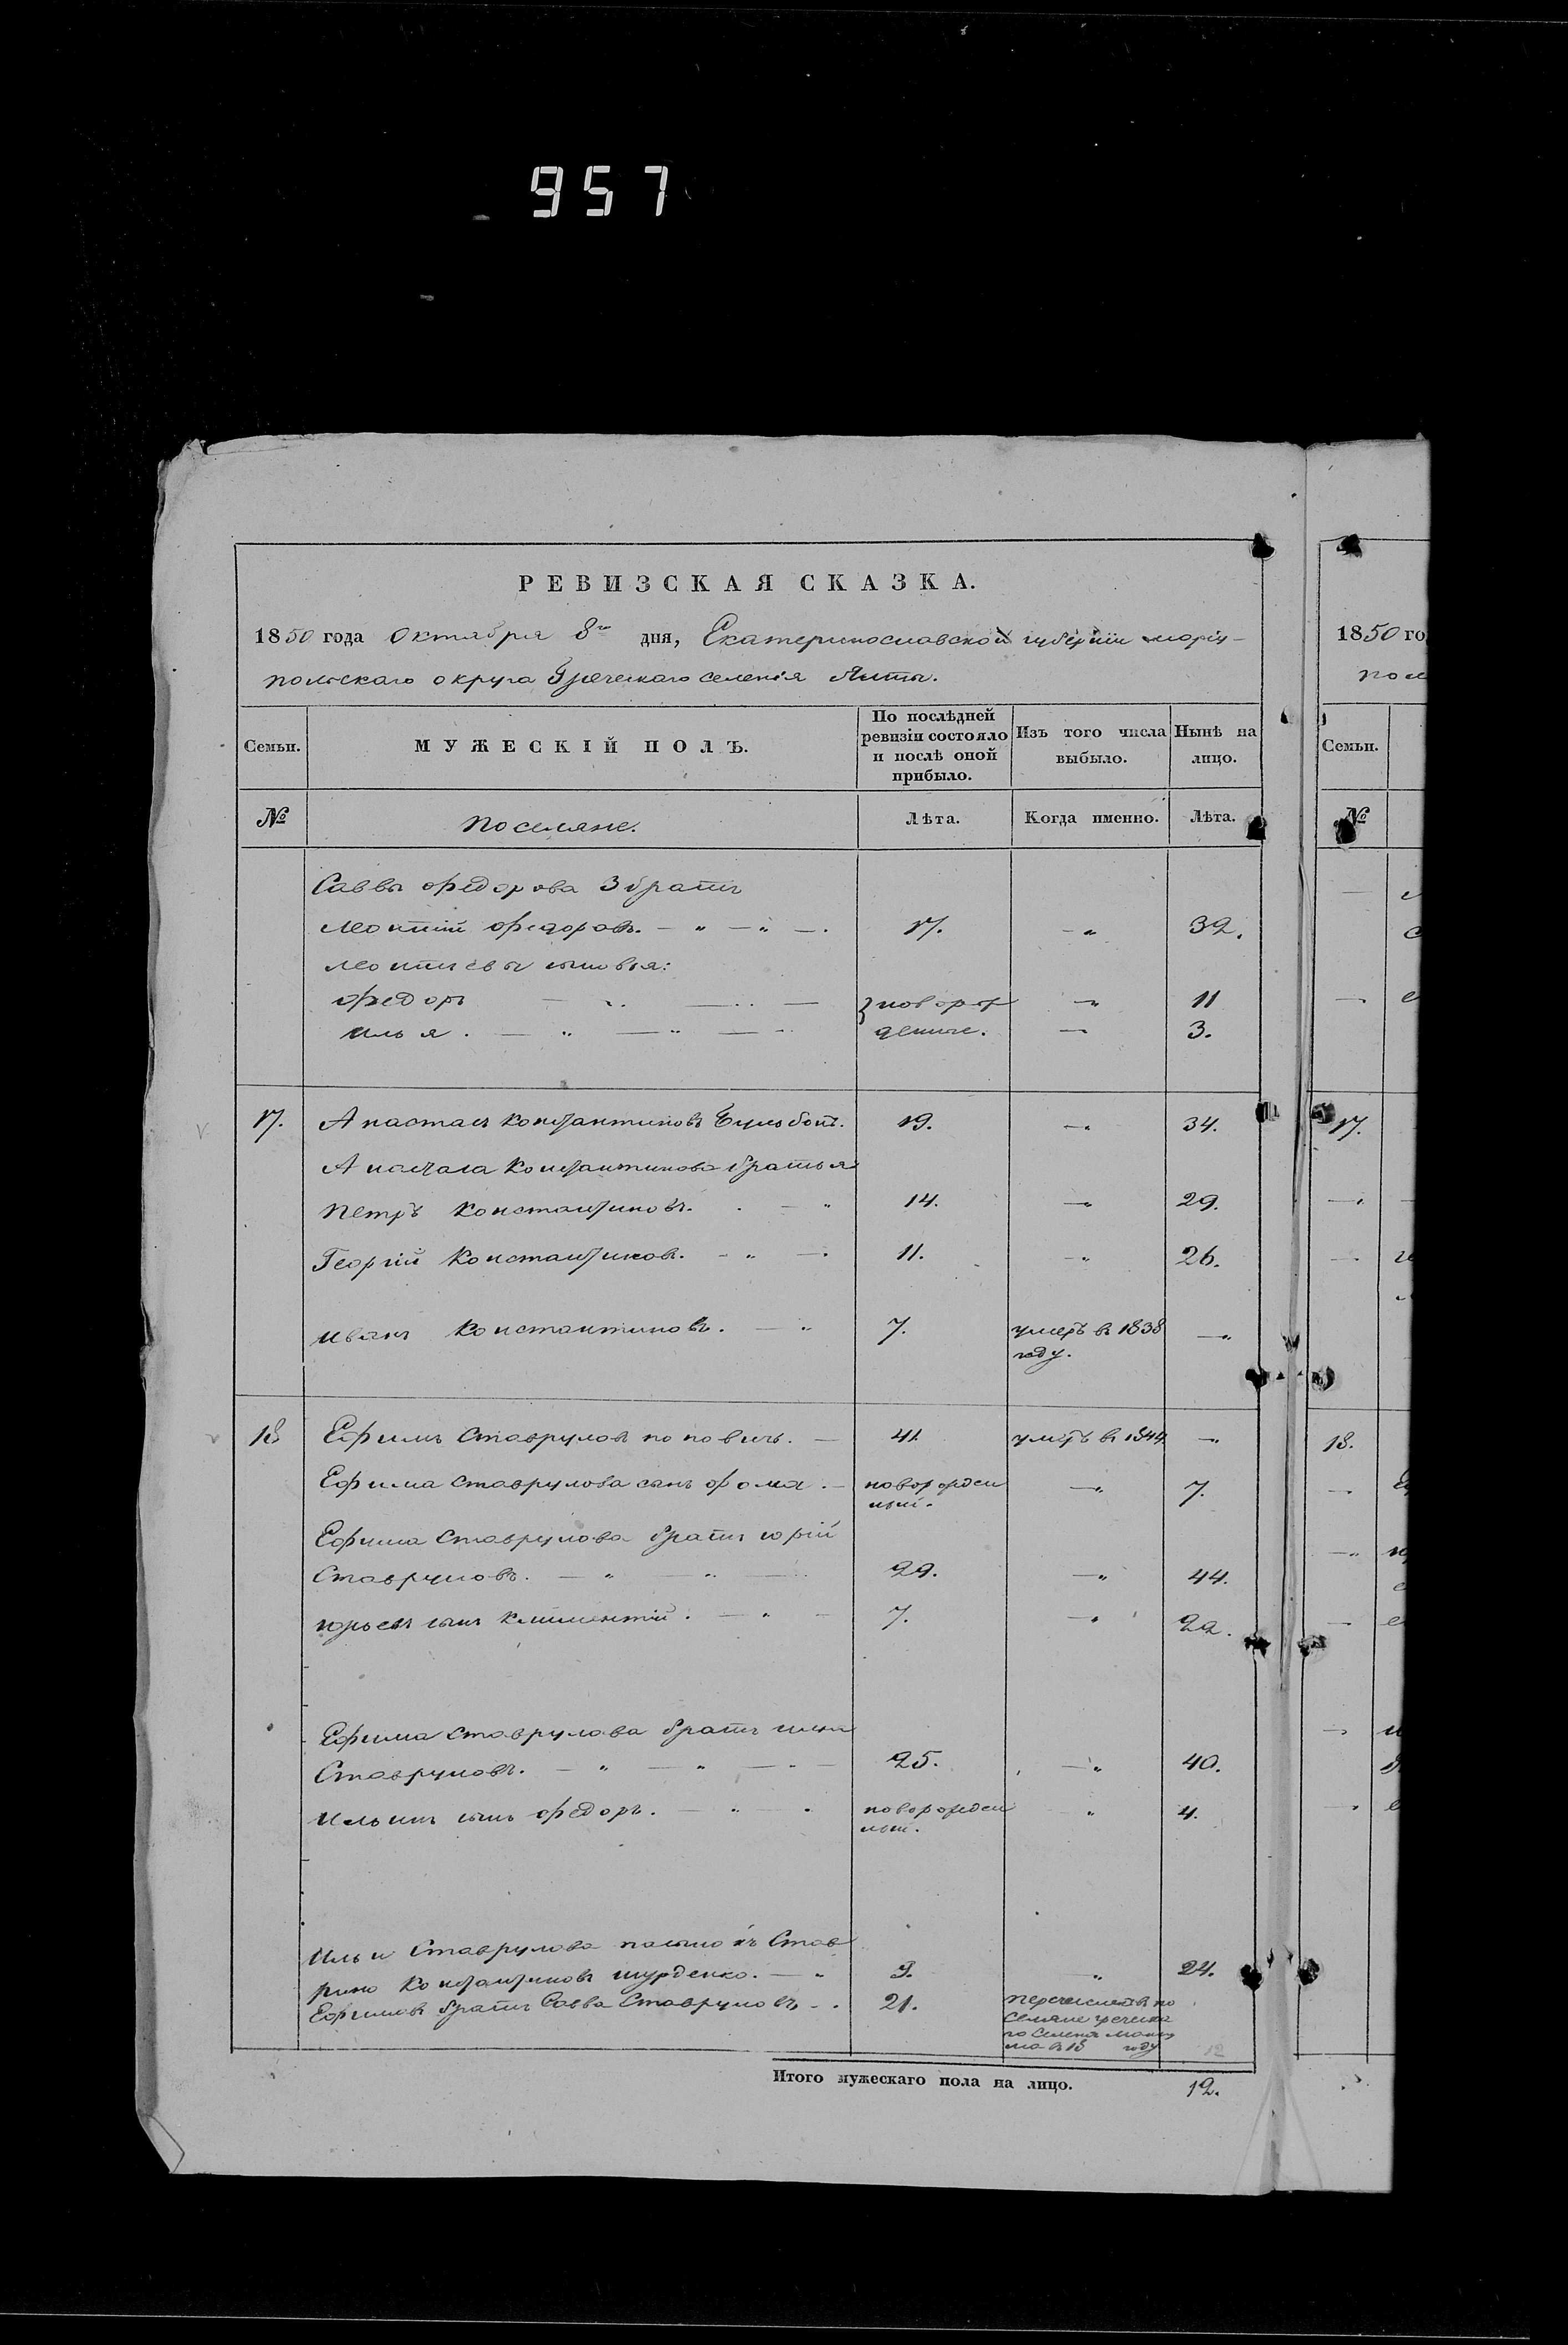 957
РЕВИЗСКАЯ СКАЗКА.
1850 года Октября 8го дня, Екатеринославской губерніи маріу-
польскаго округа Греческаго селенія Ялты.
1850 го
пол
Семьи.
МУЖЕСКІЙ ПОЛЪ.
По послѣдней ревизіи состояло и послѣ оной прибыло.
Изъ того числа выбыло.
Нынѣ на лицо.
Семьи.
№ поселяне. Лѣта. Когда именно. Лѣта. №
Саввы Федорова 3 братъ
Леонтій Федоровъ. — „ — „ —. 17. —„ 32.
Леонтіевы сыновья:
Федоръ новорож 11
Илья. — „ — „ — денные. — 3.
17. Анастасъ Константиновъ 19. —„ 34. 17.
Константинова братья
Петръ Константиновъ. 14. —„ 29.
Георгій Константиновъ. — „ —. 11. —„ 26.
Иванъ Константиновъ. — „ 7. умеръ въ 1838 —„
году.
18 Ефимъ Ставруловъ поповичъ. — 41. умеръ въ 1844 —„ 18.
Ефима Ставрулова сынъ Фома. — новорожден —„ 7.
ный.
Ефима Ставрулова братъ Юрій
Ставруловъ. — „ — „ — 29. —„ 44.
Юрьевъ сынъ Климентій. — „ — 7. —„ 22.
Ефима Ставрулова братъ Илья
Ставруловъ. — „ — „ — 25. —„ 40.
Ильинъ сынъ Федоръ. — „ новорожден „ 4.
ный.
Ильи Ставрулова пасынокъ Став
рино Константиновъ — „ 9. „ 24.
Ефимовъ братъ Савва Ставруловъ — . 21. перечисленъ въ по
селяне греческа
го селенія
въ 18 году 12
Итого мужескаго пола на лицо. 12.